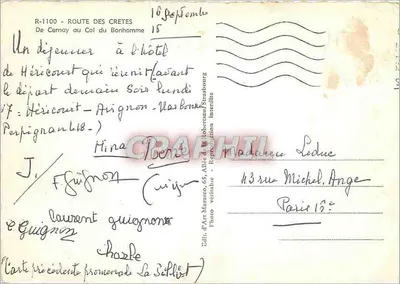 R-1100 - ROUTE DES CRETES
De Cernay au Col du Bonhomme
16 Septembre
Un déjeuner à l'hôtel
de Héricourt qui réunit (avant
le départ demain soir lundi
17 = Héricourt - Avignon - Narbonne
Perpignan
J.
F. Guignon
Laurent guignon
Guignon
Charle
(Carte précédente promenade
Madame Leduc
43 rue Michel. Ange
Paris
Edit. d'Art
Strasbourg
Photo véritable - Reproduction interdite
CPAPHIL